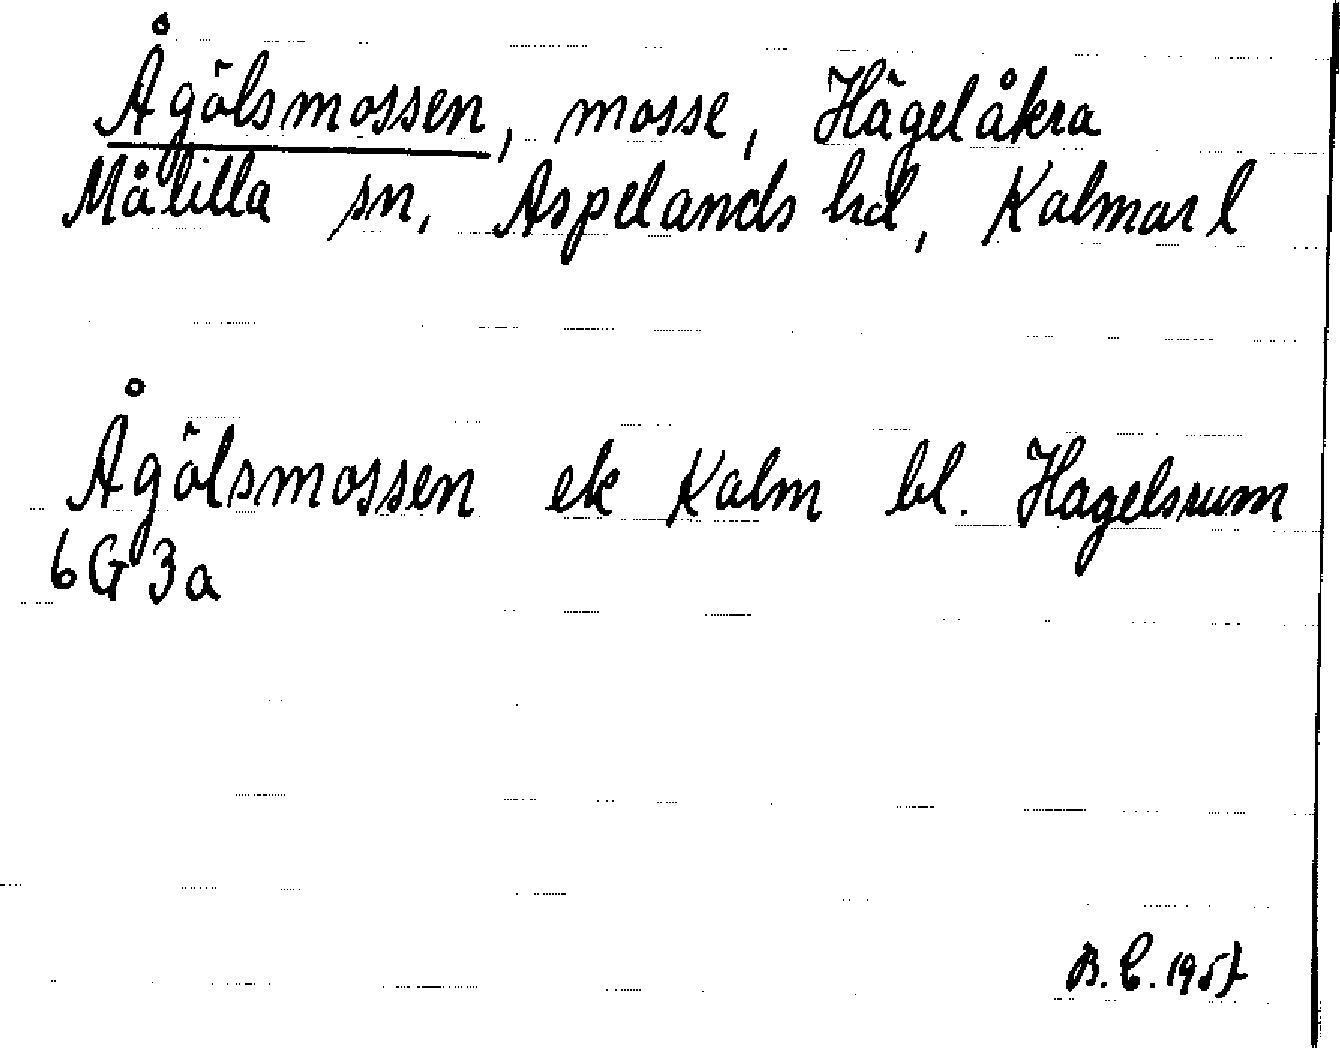 Ågölsmossen, mosse, Hägelåkra
Målilla sn, Aspelands hd, Kalmar l
Ågölsmossen ek Kalm bl. Hagelsrum
6G3a
B.E. 1957